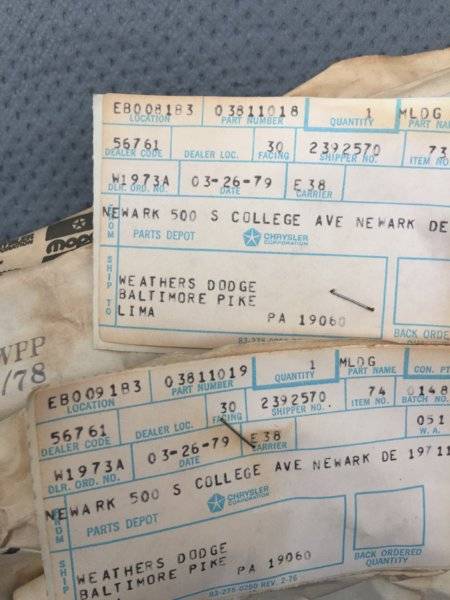 EB008183 03811018 1 MLDG
LOCATION PART NUMBER QUANTITY PART
56761 30 2392570 73
DEALER CODE DEALER LOC. FACING SHIPPER NO. ITEM NO
W1973A 03-26-79 E38
DLR. ORD. NO. DATE CARRIER
NEWARK 500 S COLLEGE AVE NEWARK DE
FROM PARTS DEPOT CHRYSLER CORPORATION
SHIP TO
WEATHERS DODGE
BALTIMORE PIKE
LIMA PA 19060
BACK ORDE
mopa
VPP
/78
EB009183 03811019 1 MLDG
LOCATION PART NUMBER QUANTITY PART NAME CON. PT
56761 30 2392570 74 0148
DEALER CODE DEALER LOC. FACING SHIPPER NO. ITEM NO. BATCH NO.
W1973A 03-26-79 E38 051
DLR. ORD. NO. DATE CARRIER W. A.
NEWARK 500 S COLLEGE AVE NEWARK DE 19711
FROM PARTS DEPOT CHRYSLER CORPORATION
SHIP
WEATHERS DODGE
BALTIMORE PIKE PA 19060
BACK ORDERED QUANTITY
83-275-0250 REV. 2-76